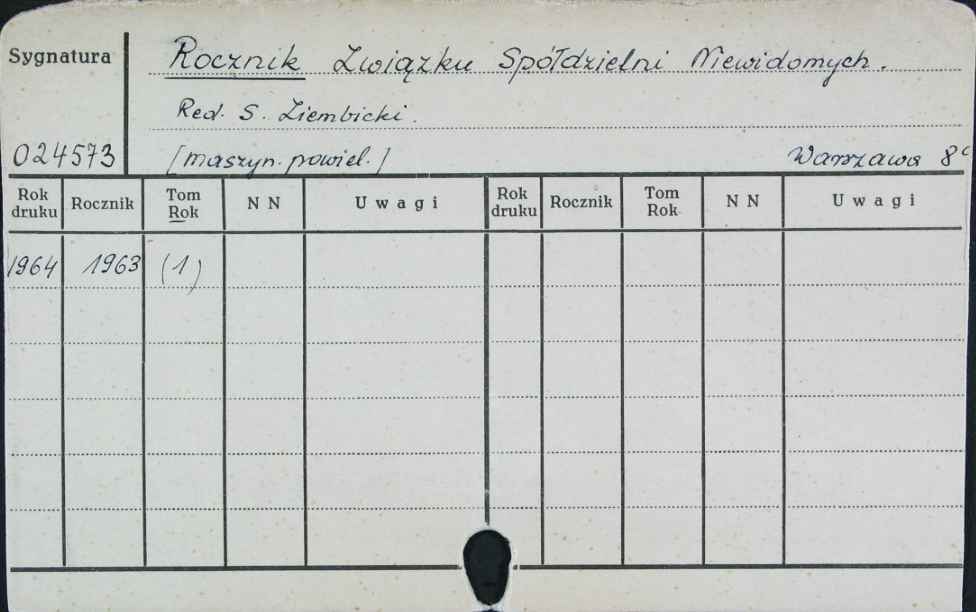 Sygnatura
Rocznik Związku Spółdzielni Niewidomych.
Red. S. Ziembicki.
024573
[maszyn. powiel.] Warszawa 8°
Rok druku Rocznik Tom Rok N N Uwagi Rok druku Rocznik Tom Rok N N Uwagi
1964 1963 (1)